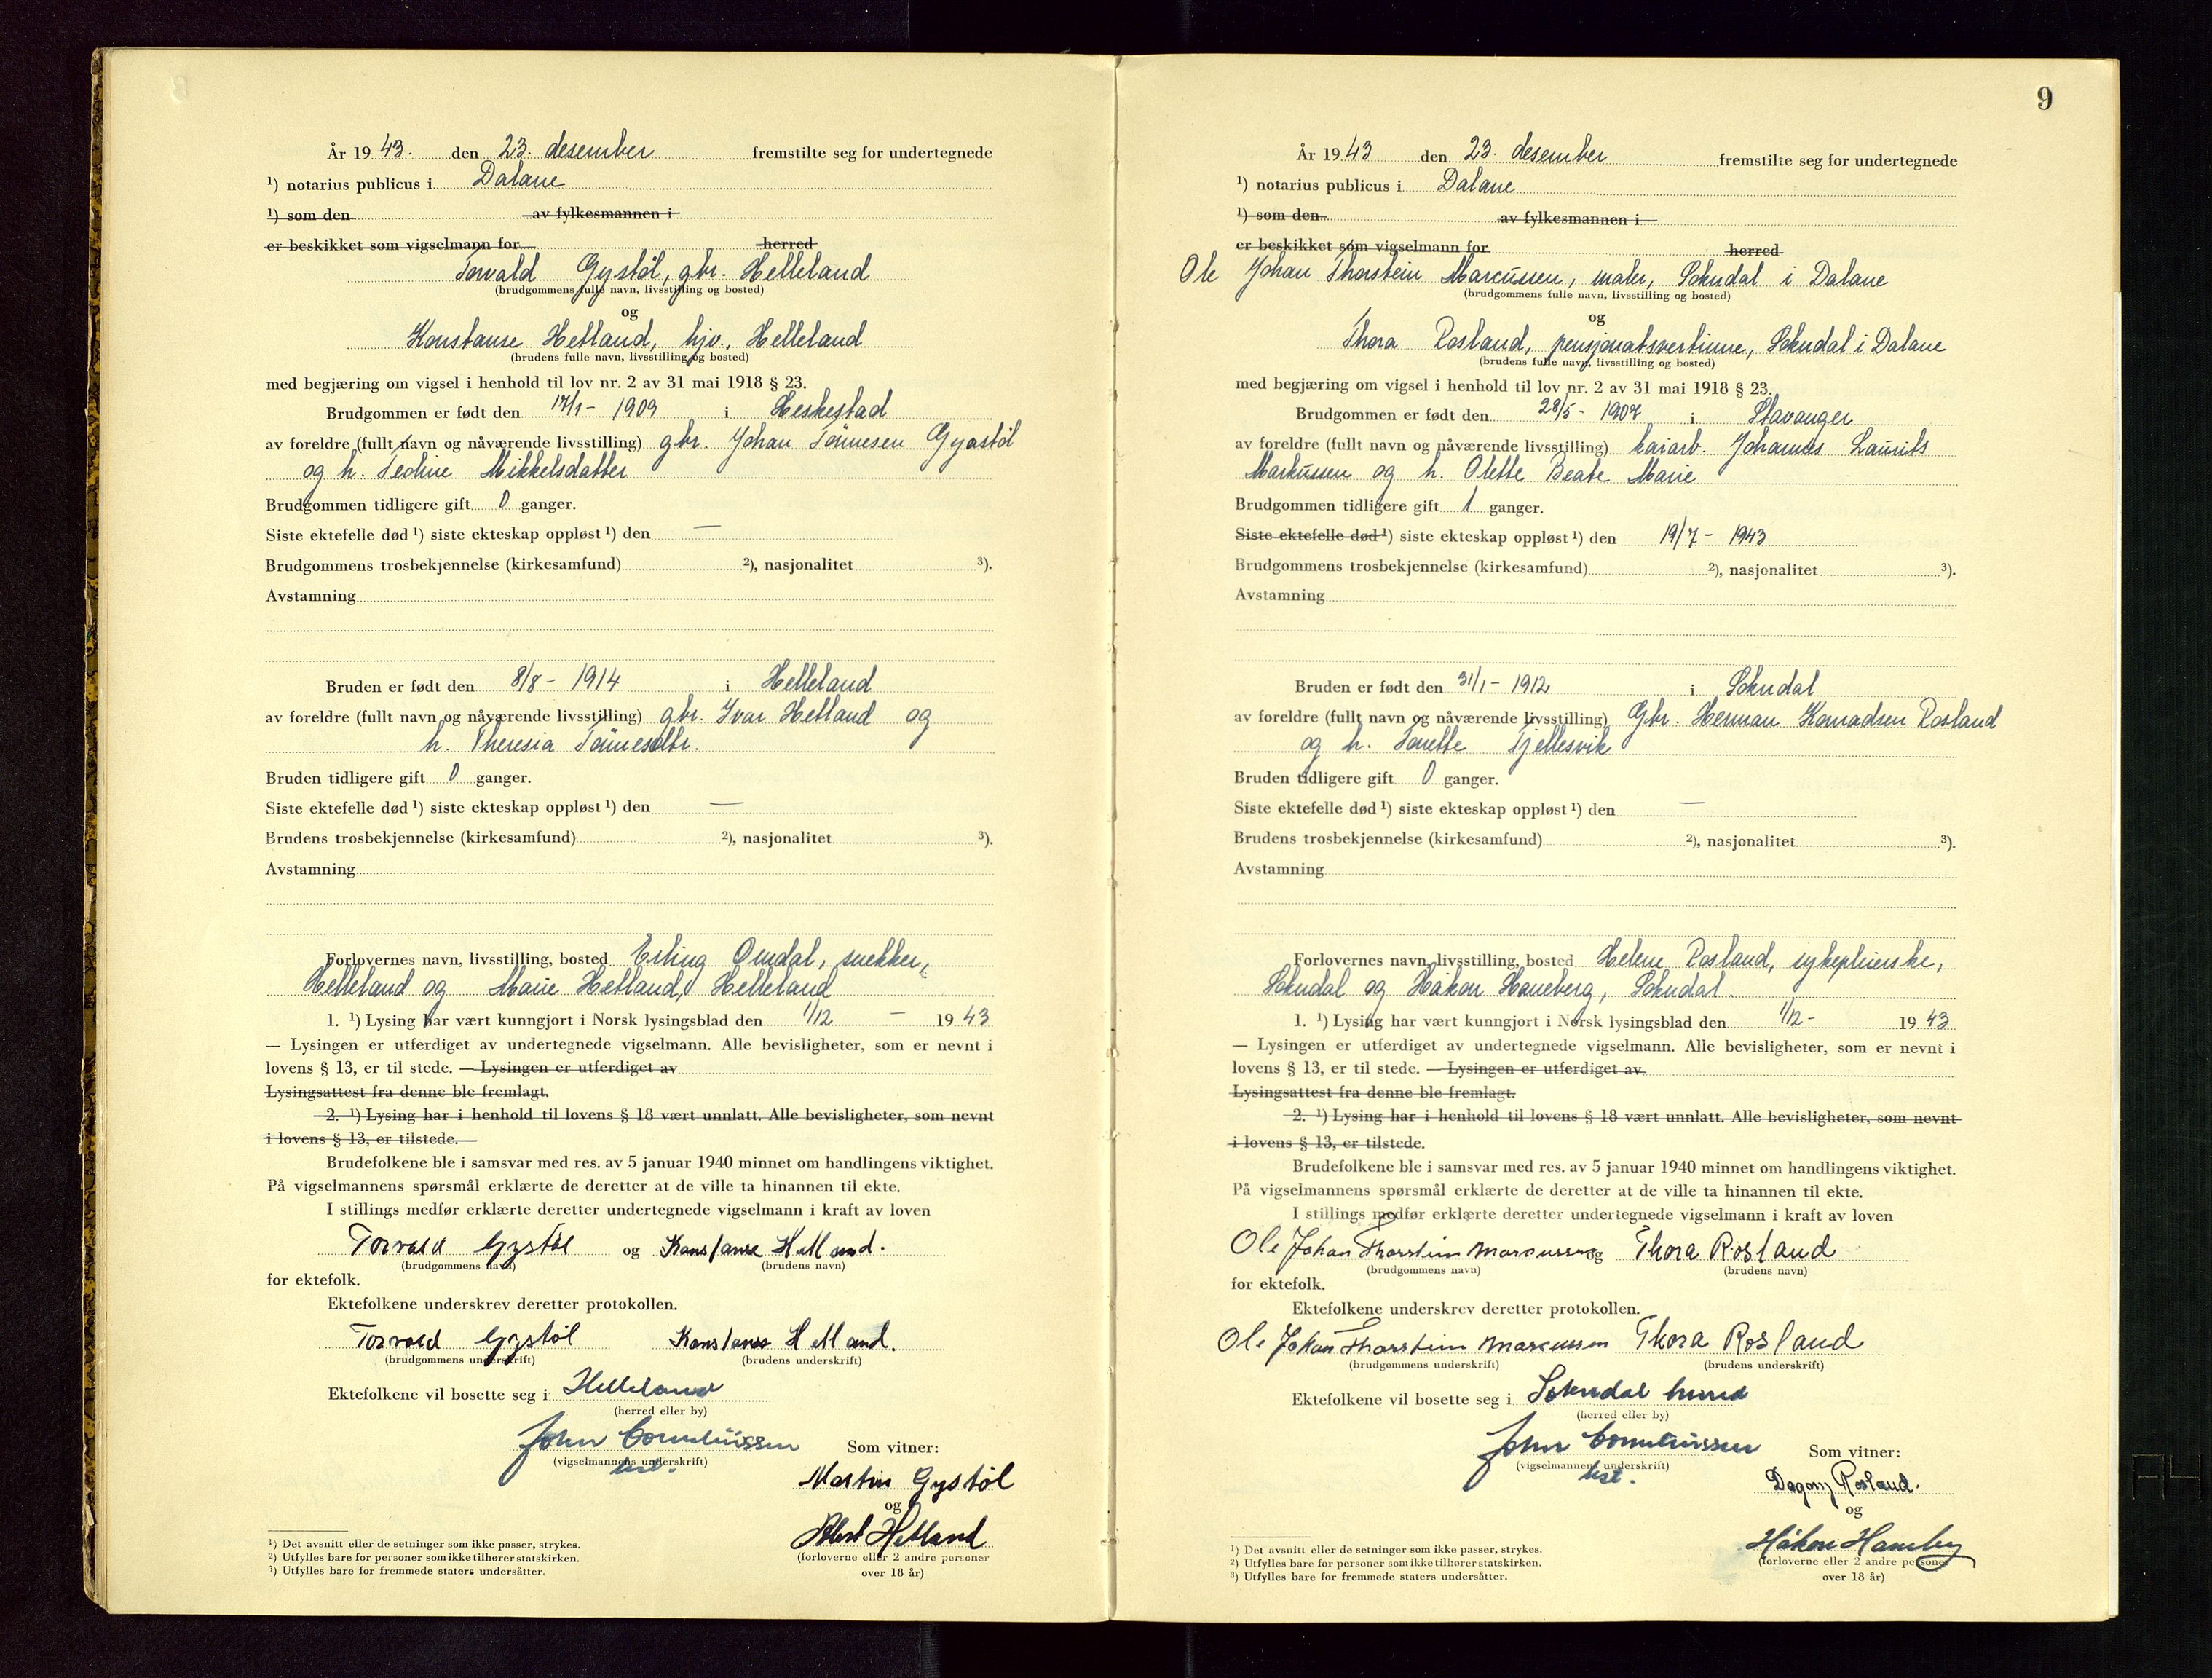 År 19 43. den 23. desember fremstilte seg for undertegnede
¹) notarius publicus i Dalane
¹) som den av fylkesmannen i
er beskikket som vigselmann for herred
Torvald Gystøl, gbr. Helleland
(brudgommens fulle navn, livsstilling og bosted)
og
Konstanse Hetland, hjv., Helleland
(brudens fulle navn, livsstilling og bosted)
med begjæring om vigsel i henhold til lov nr. 2 av 31 mai 1918 § 23.
Brudgommen er født den 17/1 - 1909 i Heskestad
av foreldre (fullt navn og nåværende livsstilling) gbr. Johan Tönnesen Gyastøl
og h. Teoline Mikkelsdatter
Brudgommen tidligere gift 0 ganger.
Siste ektefelle død ¹) siste ekteskap oppløst ¹) den —
Brudgommens trosbekjennelse (kirkesamfund) ²), nasjonalitet ³).
Avstamning
Bruden er født den 8/8 - 1914 i Helleland
av foreldre (fullt navn og nåværende livsstilling) gbr. Ivar Hetland og
h. Theresia Tönnesdtr.
Bruden tidligere gift 0 ganger.
Siste ektefelle død ¹) siste ekteskap oppløst ¹) den —
Brudens trosbekjennelse (kirkesamfund) ²), nasjonalitet ³).
Avstamning
Forlovernes navn, livsstilling, bosted Erling Omdal, snekker,
Helleland og Marie Hetland, Helleland
1. ¹) Lysing har vært kunngjort i Norsk lysingsblad den 1/12 - 19 43
— Lysingen er utferdiget av undertegnede vigselmann. Alle bevisligheter, som er nevnt i
lovens § 13, er til stede. — Lysingen er utferdiget av
Lysingsattest fra denne ble fremlagt.
2. ¹) Lysing har i henhold til lovens § 18 vært unnlatt. Alle bevisligheter, som nevnt
i lovens § 13, er tilstede.
Brudefolkene ble i samsvar med res. av 5 januar 1940 minnet om handlingens viktighet.
På vigselmannens spørsmål erklærte de deretter at de ville ta hinannen til ekte.
I stillings medfør erklærte deretter undertegnede vigselmann i kraft av loven
Torvald Gystøl og Konstanse Hetland.
(brudgommens navn) (brudens navn)
for ektefolk.
Ektefolkene underskrev deretter protokollen.
Torvald Gystøl Konstanse Hetland.
(brudgommens underskrift) (brudens underskrift)
Ektefolkene vil bosette seg i Helleland
(herred eller by)
John Corneliussen
(vigselmannens underskrift) Som vitner:
Martin Gystøl
og
Hetland
(forloverne eller 2 andre personer
over 18 år)
¹) Det avsnitt eller de setninger som ikke passer, strykes.
²) Utfylles bare for personer som ikke tilhører statskirken.
³) Utfylles bare for fremmede staters undersåtter.
9
År 19 43 den 23. desember fremstilte seg for undertegnede
¹) notarius publicus i Dalane
¹) som den av fylkesmannen i
er beskikket som vigselmann for herred
Ole Johan Thorstein Marcussen, maler, Sokndal i Dalane
(brudgommens fulle navn, livsstilling og bosted)
og
Thora Rosland, pensjonatsvertinne, Sokndal i Dalane
(brudens fulle navn, livsstilling og bosted)
med begjæring om vigsel i henhold til lov nr. 2 av 31 mai 1918 § 23.
Brudgommen er født den 28/5 - 1907 i Stavanger
av foreldre (fullt navn og nåværende livsstilling) kaiarb. Johannes Laurits
Markussen og h. Olette Beate Marie
Brudgommen tidligere gift 1 ganger.
Siste ektefelle død ¹) siste ekteskap oppløst ¹) den 19/7 - 1943
Brudgommens trosbekjennelse (kirkesamfund) ²), nasjonalitet ³).
Avstamning
Bruden er født den 31/1 - 1912 i Sokndal
av foreldre (fullt navn og nåværende livsstilling) Gbr. Herman Konradsen Rosland
og h. Tonette Tjellesvik
Bruden tidligere gift 0 ganger.
Siste ektefelle død ¹) siste ekteskap oppløst ¹) den —
Brudens trosbekjennelse (kirkesamfund) ²), nasjonalitet ³).
Avstamning
Forlovernes navn, livsstilling, bosted Helene Rosland, sykepleierske,
Sokndal og Håkon Haneberg, Sokndal.
1. ¹) Lysing har vært kunngjort i Norsk lysingsblad den 1/12 - 19 43
— Lysingen er utferdiget av undertegnede vigselmann. Alle bevisligheter, som er nevnt i
lovens § 13, er til stede. — Lysingen er utferdiget av
Lysingsattest fra denne ble fremlagt.
2. ¹) Lysing har i henhold til lovens § 18 vært unnlatt. Alle bevisligheter, som nevnt
i lovens § 13, er tilstede.
Brudefolkene ble i samsvar med res. av 5 januar 1940 minnet om handlingens viktighet.
På vigselmannens spørsmål erklærte de deretter at de ville ta hinannen til ekte.
I stillings medfør erklærte deretter undertegnede vigselmann i kraft av loven
Ole Johan Thorstein Marcussen og Thora Rosland
(brudgommens navn) (brudens navn)
for ektefolk.
Ektefolkene underskrev deretter protokollen.
Ole Johan Thorstein Marcussen Thora Rosland
(brudgommens underskrift) (brudens underskrift)
Ektefolkene vil bosette seg i Sokndal herred
(herred eller by)
John Corneliussen
(vigselmannens underskrift) Som vitner:
Dagny Rosland.
og
Håkon Haneberg
(forloverne eller 2 andre personer
over 18 år)
¹) Det avsnitt eller de setninger som ikke passer, strykes.
²) Utfylles bare for personer som ikke tilhører statskirken.
³) Utfylles bare for fremmede staters undersåtter.